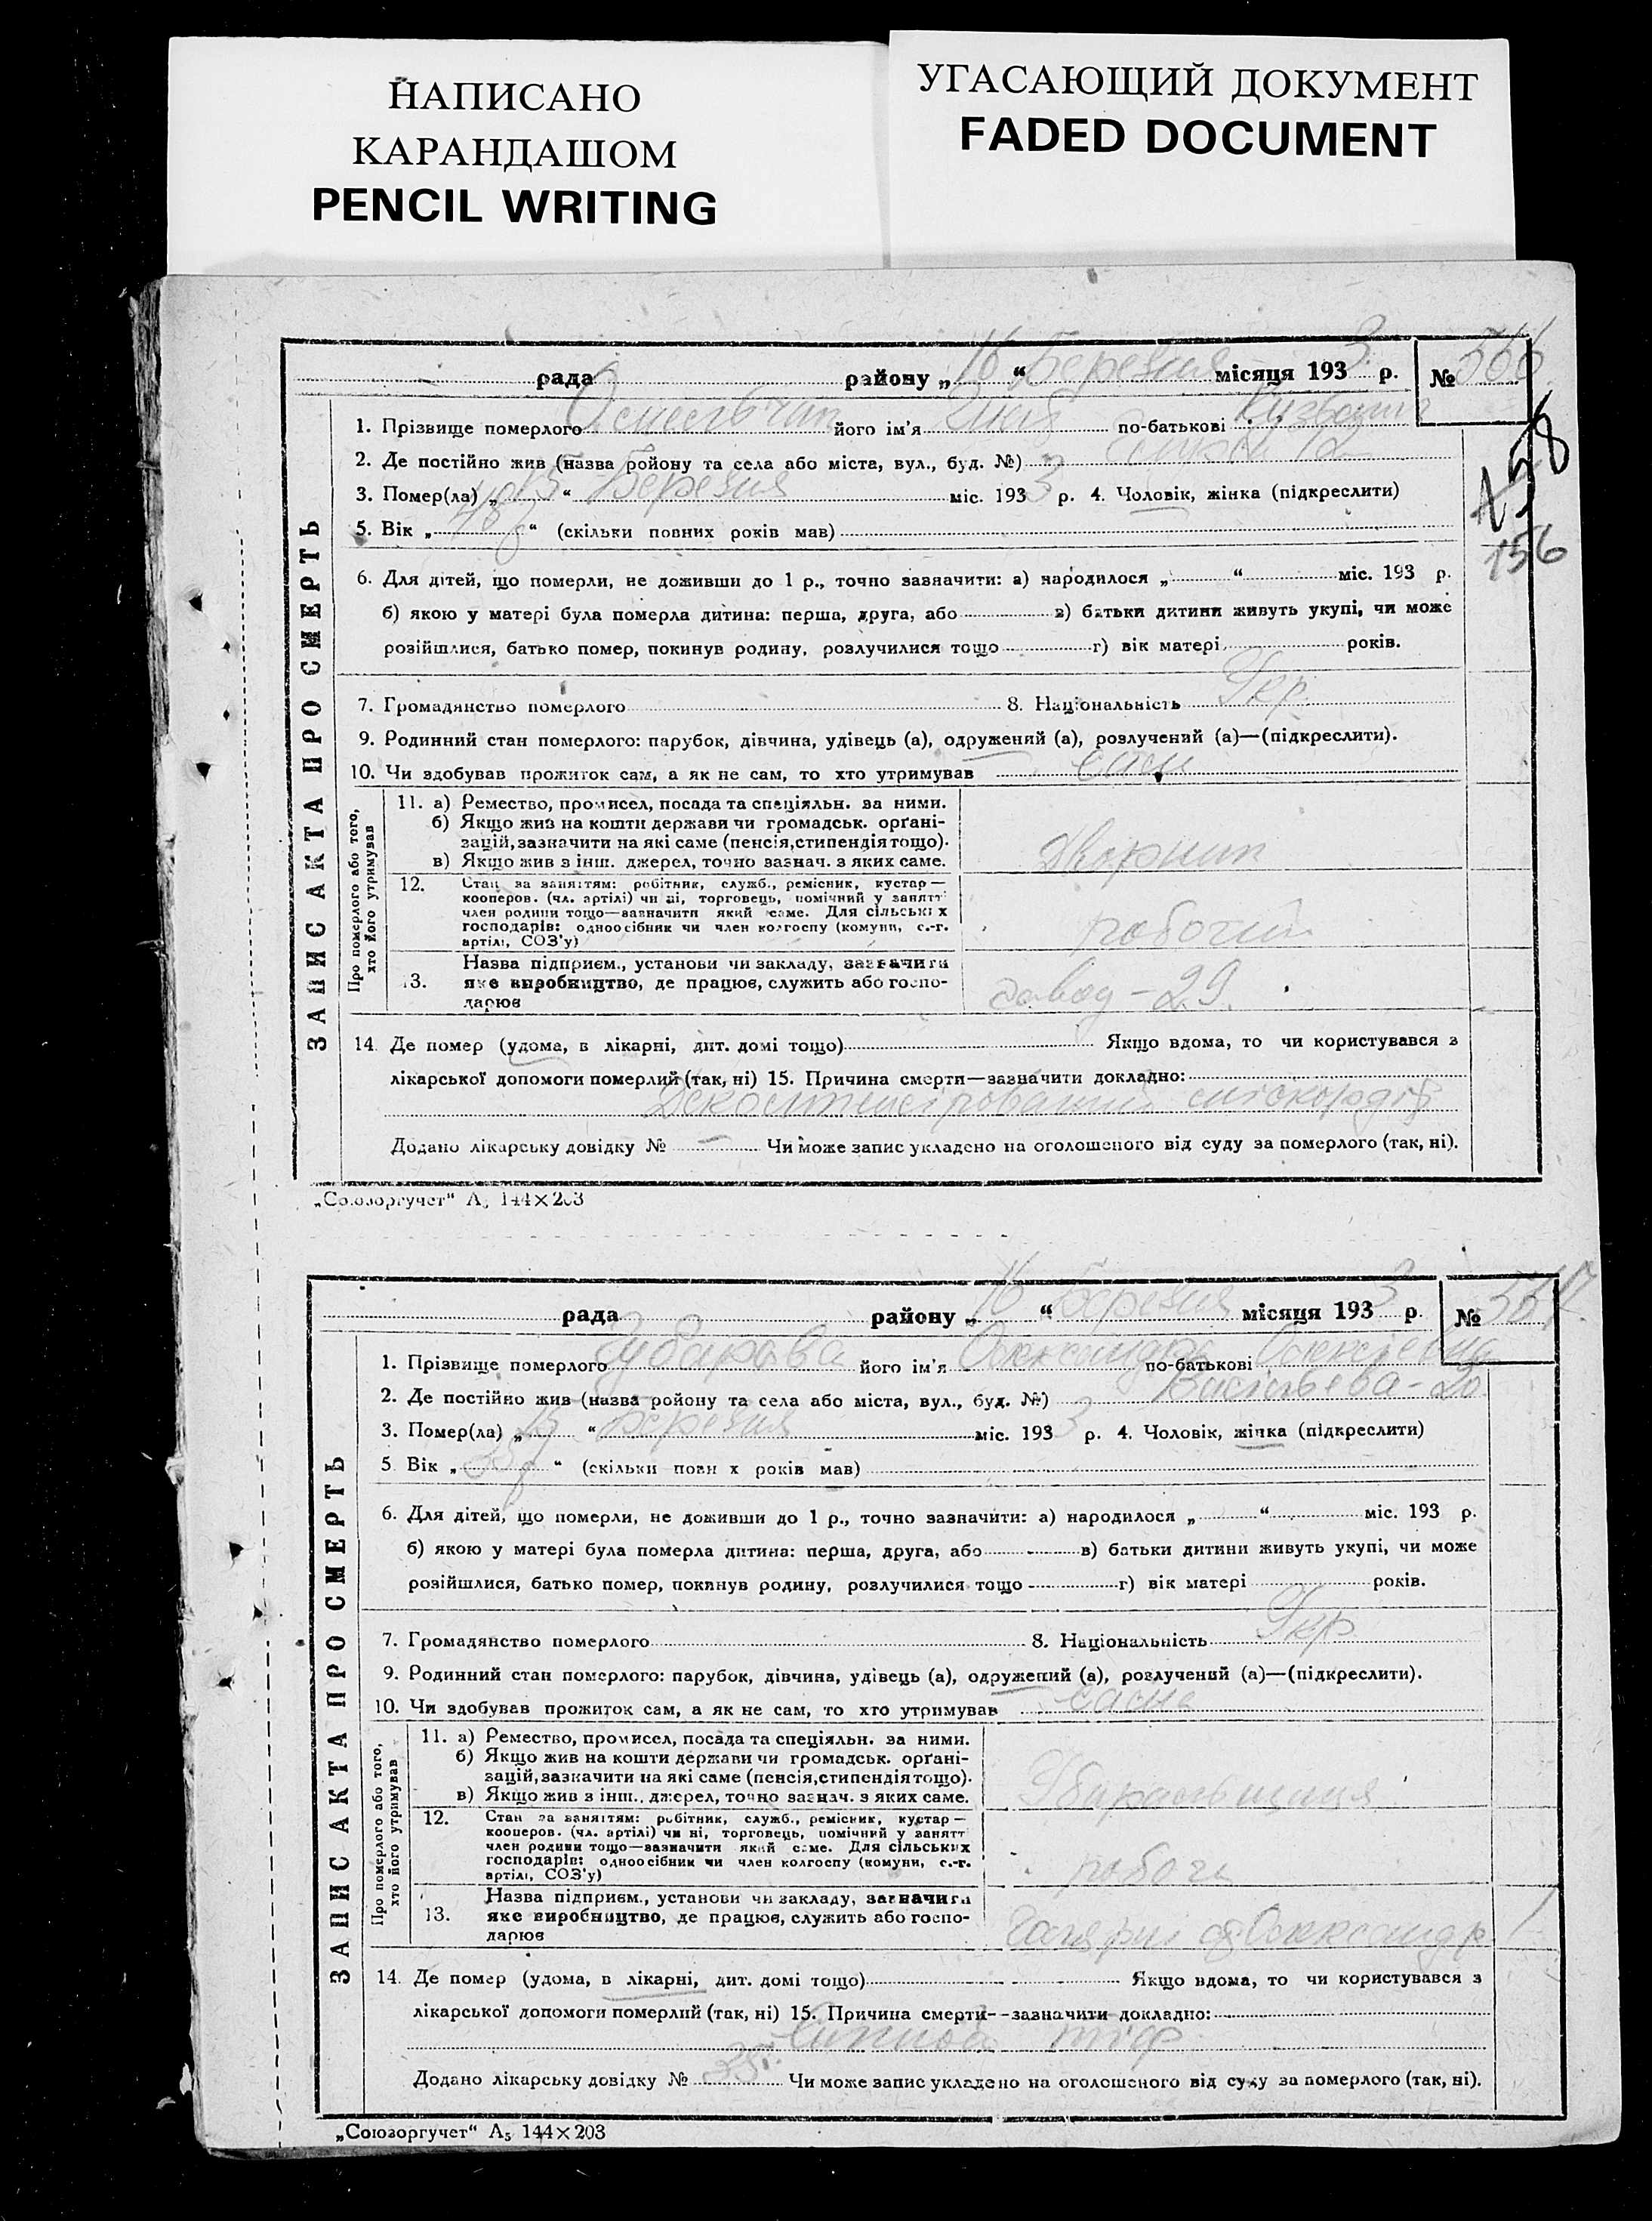 НАПИСАНО
КАРАНДАШОМ
PENCIL WRITING
УГАСАЮЩИЙ ДОКУМЕНТ
FADED DOCUMENT
рада району „16“ Березня місяця 1933 р. №
1. Прізвище померлого його ім'я по-батькові
2. Де постійно жив (назва ройону та села або міста, вул., буд. №)
3. Помер(ла) „15“ Березня міс. 1933 р. 4. Чоловік, жінка (підкреслити)
158
5. Вік „ “ (скільки повних років мав)
156
6. Для дітей, що померли, не доживши до 1 р., точно зазначити: а) народилося „ “ міс. 193 р.
б) якою у матері була померла дитина: перша, друга, або в) батьки дитини живуть укупі, чи може
розійшлися, батько помер, покинув родину, розлучилися тощо г) вік матері років.
7. Громадянство померлого 8. Національність Укр.
9. Родинний стан померлого: парубок, дівчина, удівець (а), одружений (а), розлучений (а)—(підкреслити).
10. Чи здобував прожиток сам, а як не сам, то хто утримував сам
ЗАПИС АКТА ПРО СМЕРТЬ
Про померлого або того, хто його утримував
11. а) Ремество, промисел, посада та спеціяльн. за ними.
б) Якщо жив на кошти держави чи громадськ. орґані-
зацій, зазначити на які саме (пенсія, стипендія тощо).
в) Якщо жив з інш. джерел, точно зазнач. з яких саме.
Дворник
12. Стан за заняттям: робітник, служб., ремісник, кустар—
кооперов. (чл. артілі) чи ні, торговець, помічний у занятт
член родини тощо—зазначити який саме. Для сільських
господарів: одноосібник чи член колгоспу (комуни, с.-г.
артілі, СОЗ'у)
робочий
13. Назва підприєм., установи чи закладу, зазначити
яке виробництво, де працює, служить або госпо-
дарює
завод - 29.
14. Де помер (удома, в лікарні, дит. домі тощо) Якщо вдома, то чи користувався з
лікарської допомоги померлий (так, ні) 15. Причина смерти—зазначити докладно:
Додано лікарську довідку № — Чи може запис укладено на оголошеного від суду за померлого (так, ні).
„Союзоргучет“ А₅ 144×203
рада району „16“ Березня місяця 1933 р №
1. Прізвище померлого його ім'я по-батькові
2. Де постійно жив (назва ройону та села або міста, вул., буд. №) Васильєва - 20
3. Помер(ла) „15“ Березня міс. 1933 р. 4. Чоловік, жінка (підкреслити)
5 Вік „ “ (скільки повн х років мав)
6. Для дітей, що померли, не доживши до 1 р., точно зазначити: а) народилося „ “ міс. 193 р.
б) якою у матері була померла дитина: перша, друга, або в) батьки дитини живуть укупі, чи може
розійшлися, батько помер, покинув родину, розлучилися тощо г) вік матері років.
7. Громадянство померлого 8. Національність Укр
9. Родинний стан померлого: парубок, дівчина, удівець (а), одружений (а), розлучений (а)—(підкреслити).
10. Чи здобував прожиток сам, а як не сам, то хто утримував сама
ЗАПИС АКТА ПРО СМЕРТЬ
Про померлого або того, хто його утримував
11. а) Ремество, промисел, посада та спеціяльн. за ними.
б) Якщо жив на кошти держави чи громадськ. орґані-
зацій, зазначити на які саме (пенсія, стипендія тощо).
в) Якщо жив з інш. джерел, точно зазнач. з яких саме.
12. Стан за заняттям: робітник, служб., ремісник, кустар—
кооперов. (чл. артілі) чи ні, торговець, помічний у занятт
член родини тощо—зазначити який саме. Для сільських
господарів: одноосібник чи член колгоспу (комуни, с.-г.
артілі, СОЗ'у)
13. Назва підприєм., установи чи закладу, зазначити
яке виробництво, де працює, служить або госпо-
дарює
14. Де помер (удома, в лікарні, дит. домі тощо) Якщо вдома, то чи користувався з
лікарської допомоги померлий (так, ні) 15. Причина смерти—зазначити докладно:
тіф
Додано лікарську довідку № Чи може запис укладено на оголошеного від суду за померлого (так, ні).
„Союзоргучет“ А₅ 144×203